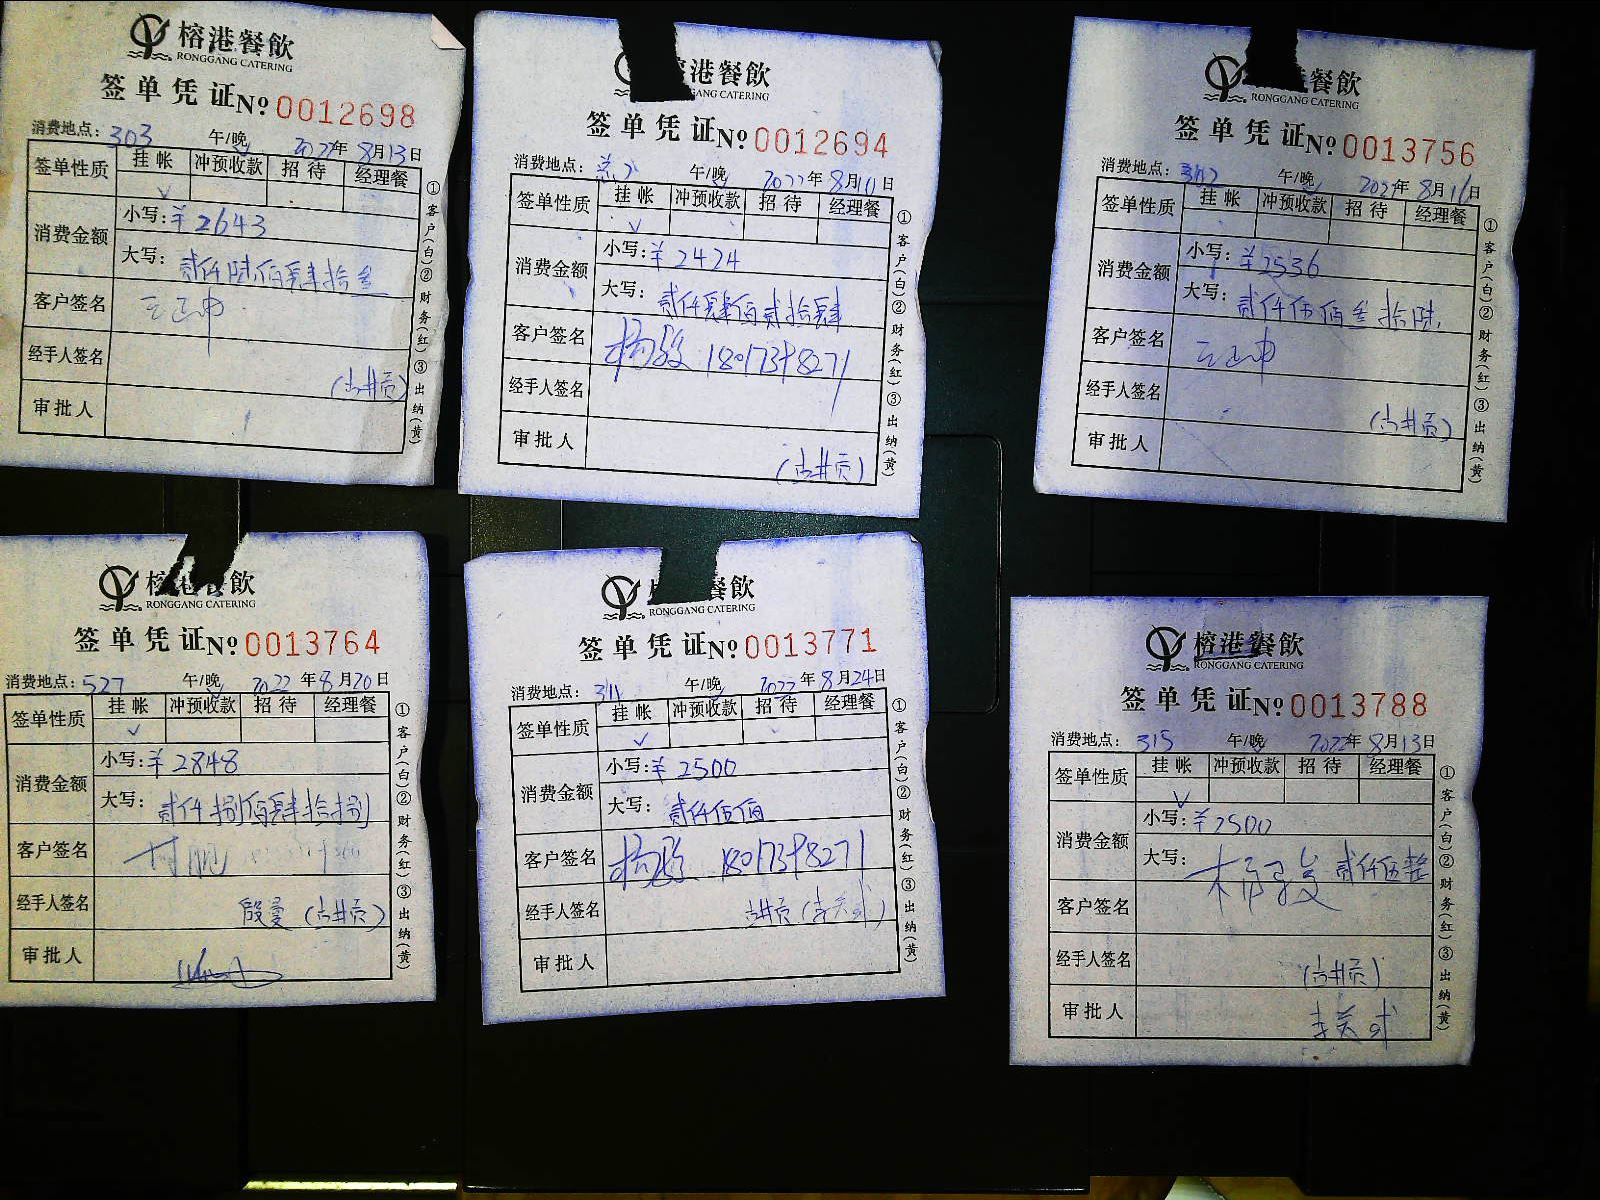 榕港餐飲
RONGGANG CATERING
签单凭证№0012698
消费地点:303 午/晚 2022年8月13日
签单性质 挂帐 冲预收款 招待 经理餐
消费金额 小写:¥2643
大写: 贰仟陆佰肆拾叁
客户签名
经手人签名
(古井贡)
审批人
①客户(白)②财务(红)③出纳(黄)
港餐飲
ANG CATERING
签单凭证№0012694
消费地点: 午/晚 2022年8月10日
签单性质 挂帐 冲预收款 招待 经理餐
消费金额 小写:¥2424
大写: 贰仟肆佰贰拾肆
客户签名 18017398271
经手人签名
审批人
(古井贡)
①客户(白)②财务(红)③出纳(黄)
餐飲
RONGGANG CATERING
签单凭证№0013756
消费地点: 午/晚 2022年8月16日
签单性质 挂帐 冲预收款 招待 经理餐
消费金额 小写:¥2536
大写: 贰仟伍佰叁拾陆
客户签名
经手人签名
(古井贡)
审批人
①客户(白)②财务(红)③出纳(黄)
餐飲
RONGGANG CATERING
签单凭证№0013764
消费地点:527 午/晚 2022年8月20日
签单性质 挂帐 冲预收款 招待 经理餐
消费金额 小写:¥2848
大写: 贰仟捌佰肆拾捌
客户签名
经手人签名 殷曼(古井贡)
审批人
①客户(白)②财务(红)③出纳(黄)
餐飲
RONGGANG CATERING
签单凭证№0013771
消费地点:311 午/晚 2022年8月24日
签单性质 挂帐 冲预收款 招待 经理餐
消费金额 小写:¥2500
大写: 贰仟伍佰
客户签名 18017398271
经手人签名 古井贡
审批人
①客户(白)②财务(红)③出纳(黄)
榕港餐飲
RONGGANG CATERING
签单凭证№0013788
消费地点:315 午/晚 2022年8月13日
签单性质 挂帐 冲预收款 招待 经理餐
消费金额 小写:¥2500
大写: 贰仟伍整
客户签名
经手人签名 (古井贡)
审批人
①客户(白)②财务(红)③出纳(黄)